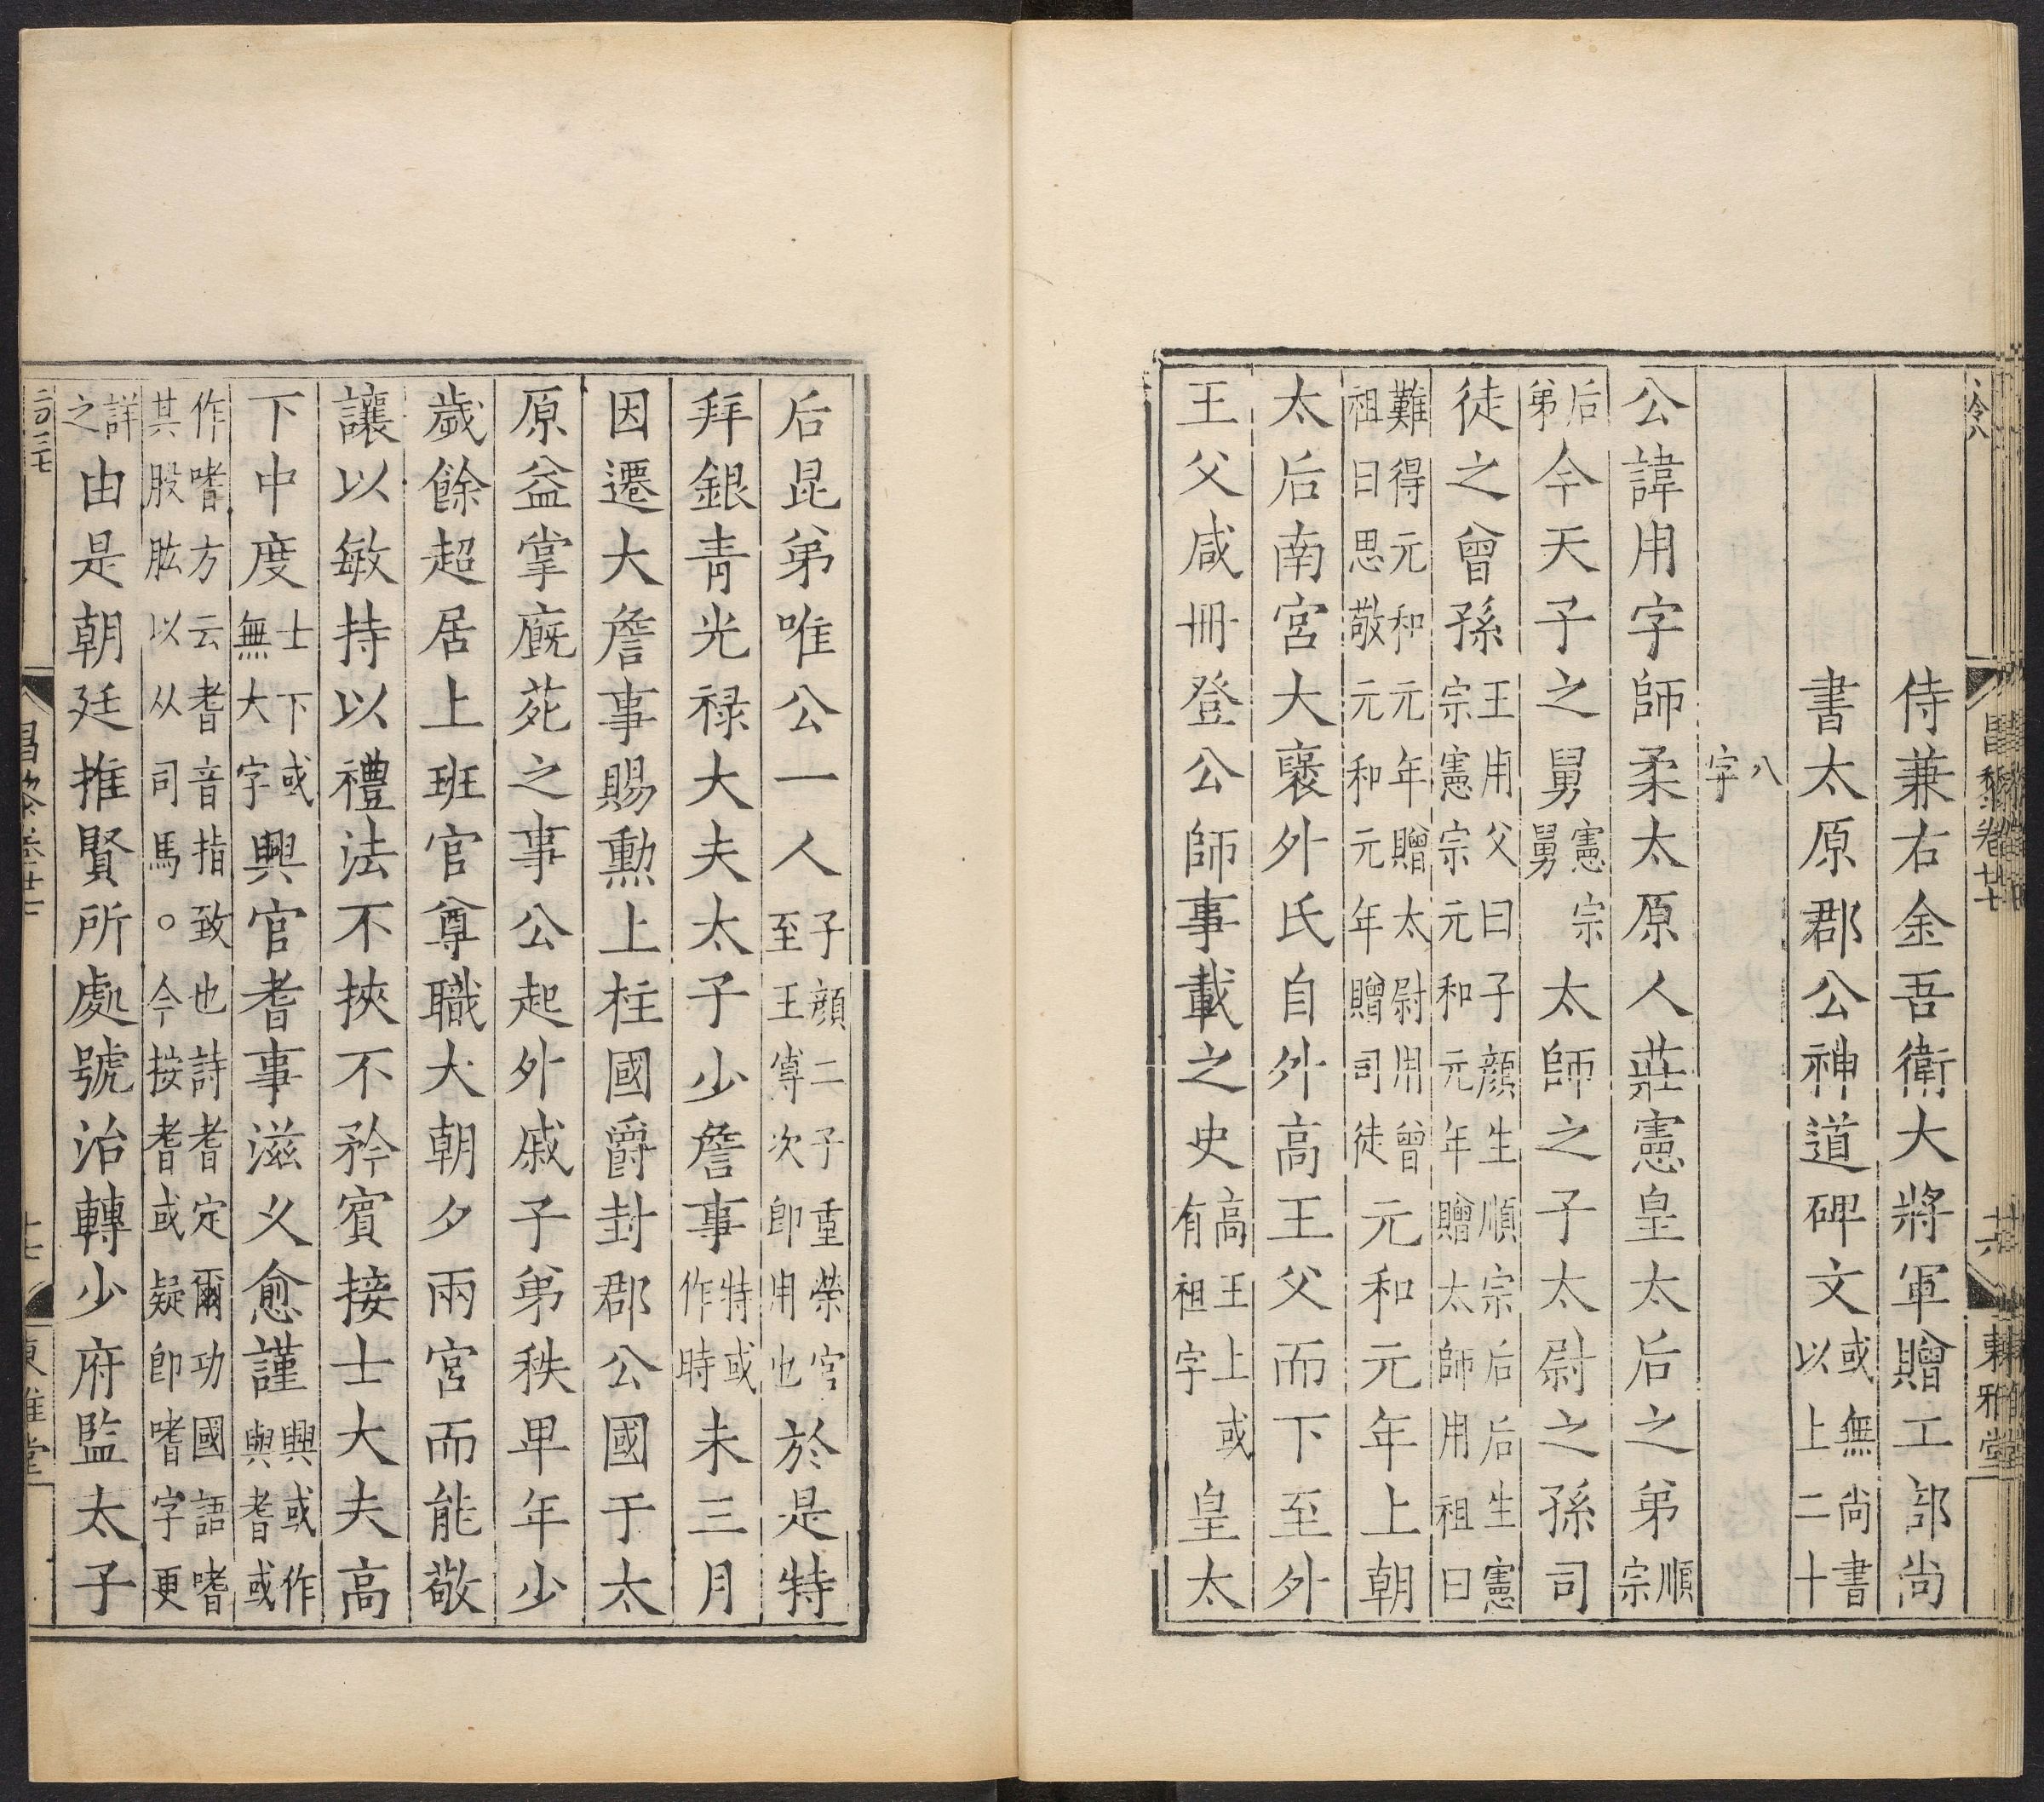 侍兼右金吾衛大將軍贈工部尚
書太原郡公神道碑文或無尚書以上二十
八字
公諱用字師柔太原人莊憲皇太后之弟順宗
后弟今天子之舅憲宗舅太師之子太尉之孫司
徒之曾孫王用父曰子顏生順宗后后生憲宗憲宗元和元年贈太師用祖曰
難得元和元年贈太尉用曾祖曰思敬元和元年贈司徒元和元年上朝
太后南宮大襃外氏自外高王父而下至外
王父咸冊登公師事載之史高王上或有祖字皇太
后昆弟唯公一人子顏二子重榮官至王傅次卽用也於是特
拜銀青光禄大夫太子少詹事特或作時未三月
因遷大詹事賜勳上柱國爵封郡公國于太
原益掌廐苑之事公起外戚子弟秩卑年少
歲餘超居上班官尊職大朝夕兩宮而能敬
讓以敏持以禮法不挾不矜賓接士大夫高
下中度士下或無大字興官耆事滋久愈謹興或作與耆或
作嗜方云耆音指致也詩耆定爾功國語嗜其股肱以从司馬。今按耆或疑卽嗜字更
詳之由是朝廷推賢所處號治轉少府監太子
昌黎卷廿七
廿六
東雅堂